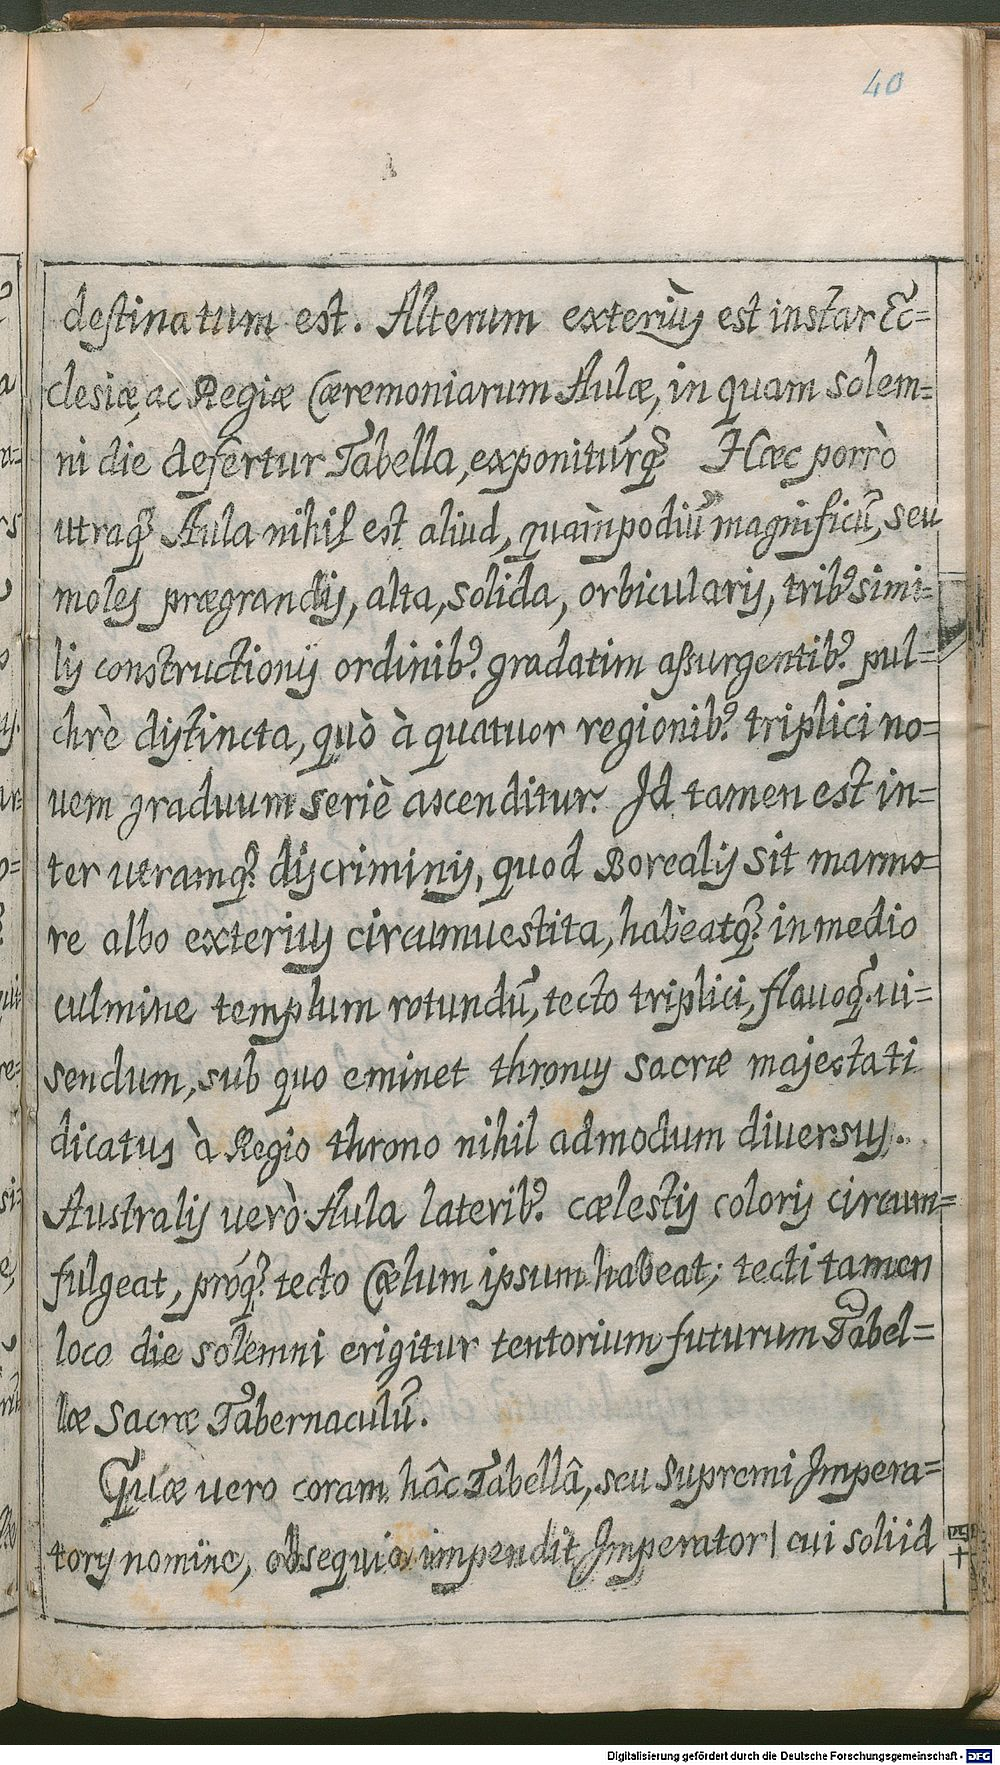 40
destinatum est. Alterum exterius est instar Ec=
clesiæ, ac Regiæ Cæremoniarum Aulæ, in quam solem=
ni die defertur Tabella, exponitúrq; Hæc porrò
utraq; Aula nihil est aliud, quàm podiũ magnificũ, seu
moles prægrandis, alta, solida, orbicularis, trib9 simi=
lis constructionis ordinib9. gradatim assurgentib9. pul=
chrè distincta, quò à quatuor regionib9. triplici no=
uem graduum seriè ascenditur. Id tamen est in=
ter utramq; discriminis, quod Borealis sit marmo=
re albo exterius circumuestita, habeatq; in medio
culmine templum rotundũ, tecto triplici, flauoq; ui=
sendum, sub quo eminet thronus sacræ majestati
dicatus à Regio throno nihil admodum diuersus.
Australis uerò Aula laterib9. cælestis coloris circum=
fulgeat, próq; tecto Cælum ipsum habeat; tecti tamen
loco die solemni erigitur tentorium futurum Tabel=
læ Sacræ Tabernaculũ.
Quæ uero coram hâc Tabellâ, seu Supremi Impera=
toris nomine, obsequia impendit Imperator, cui soliid
四
十
Digitalisierung gefördert durch die Deutsche Forschungsgemeinschaft - DFG